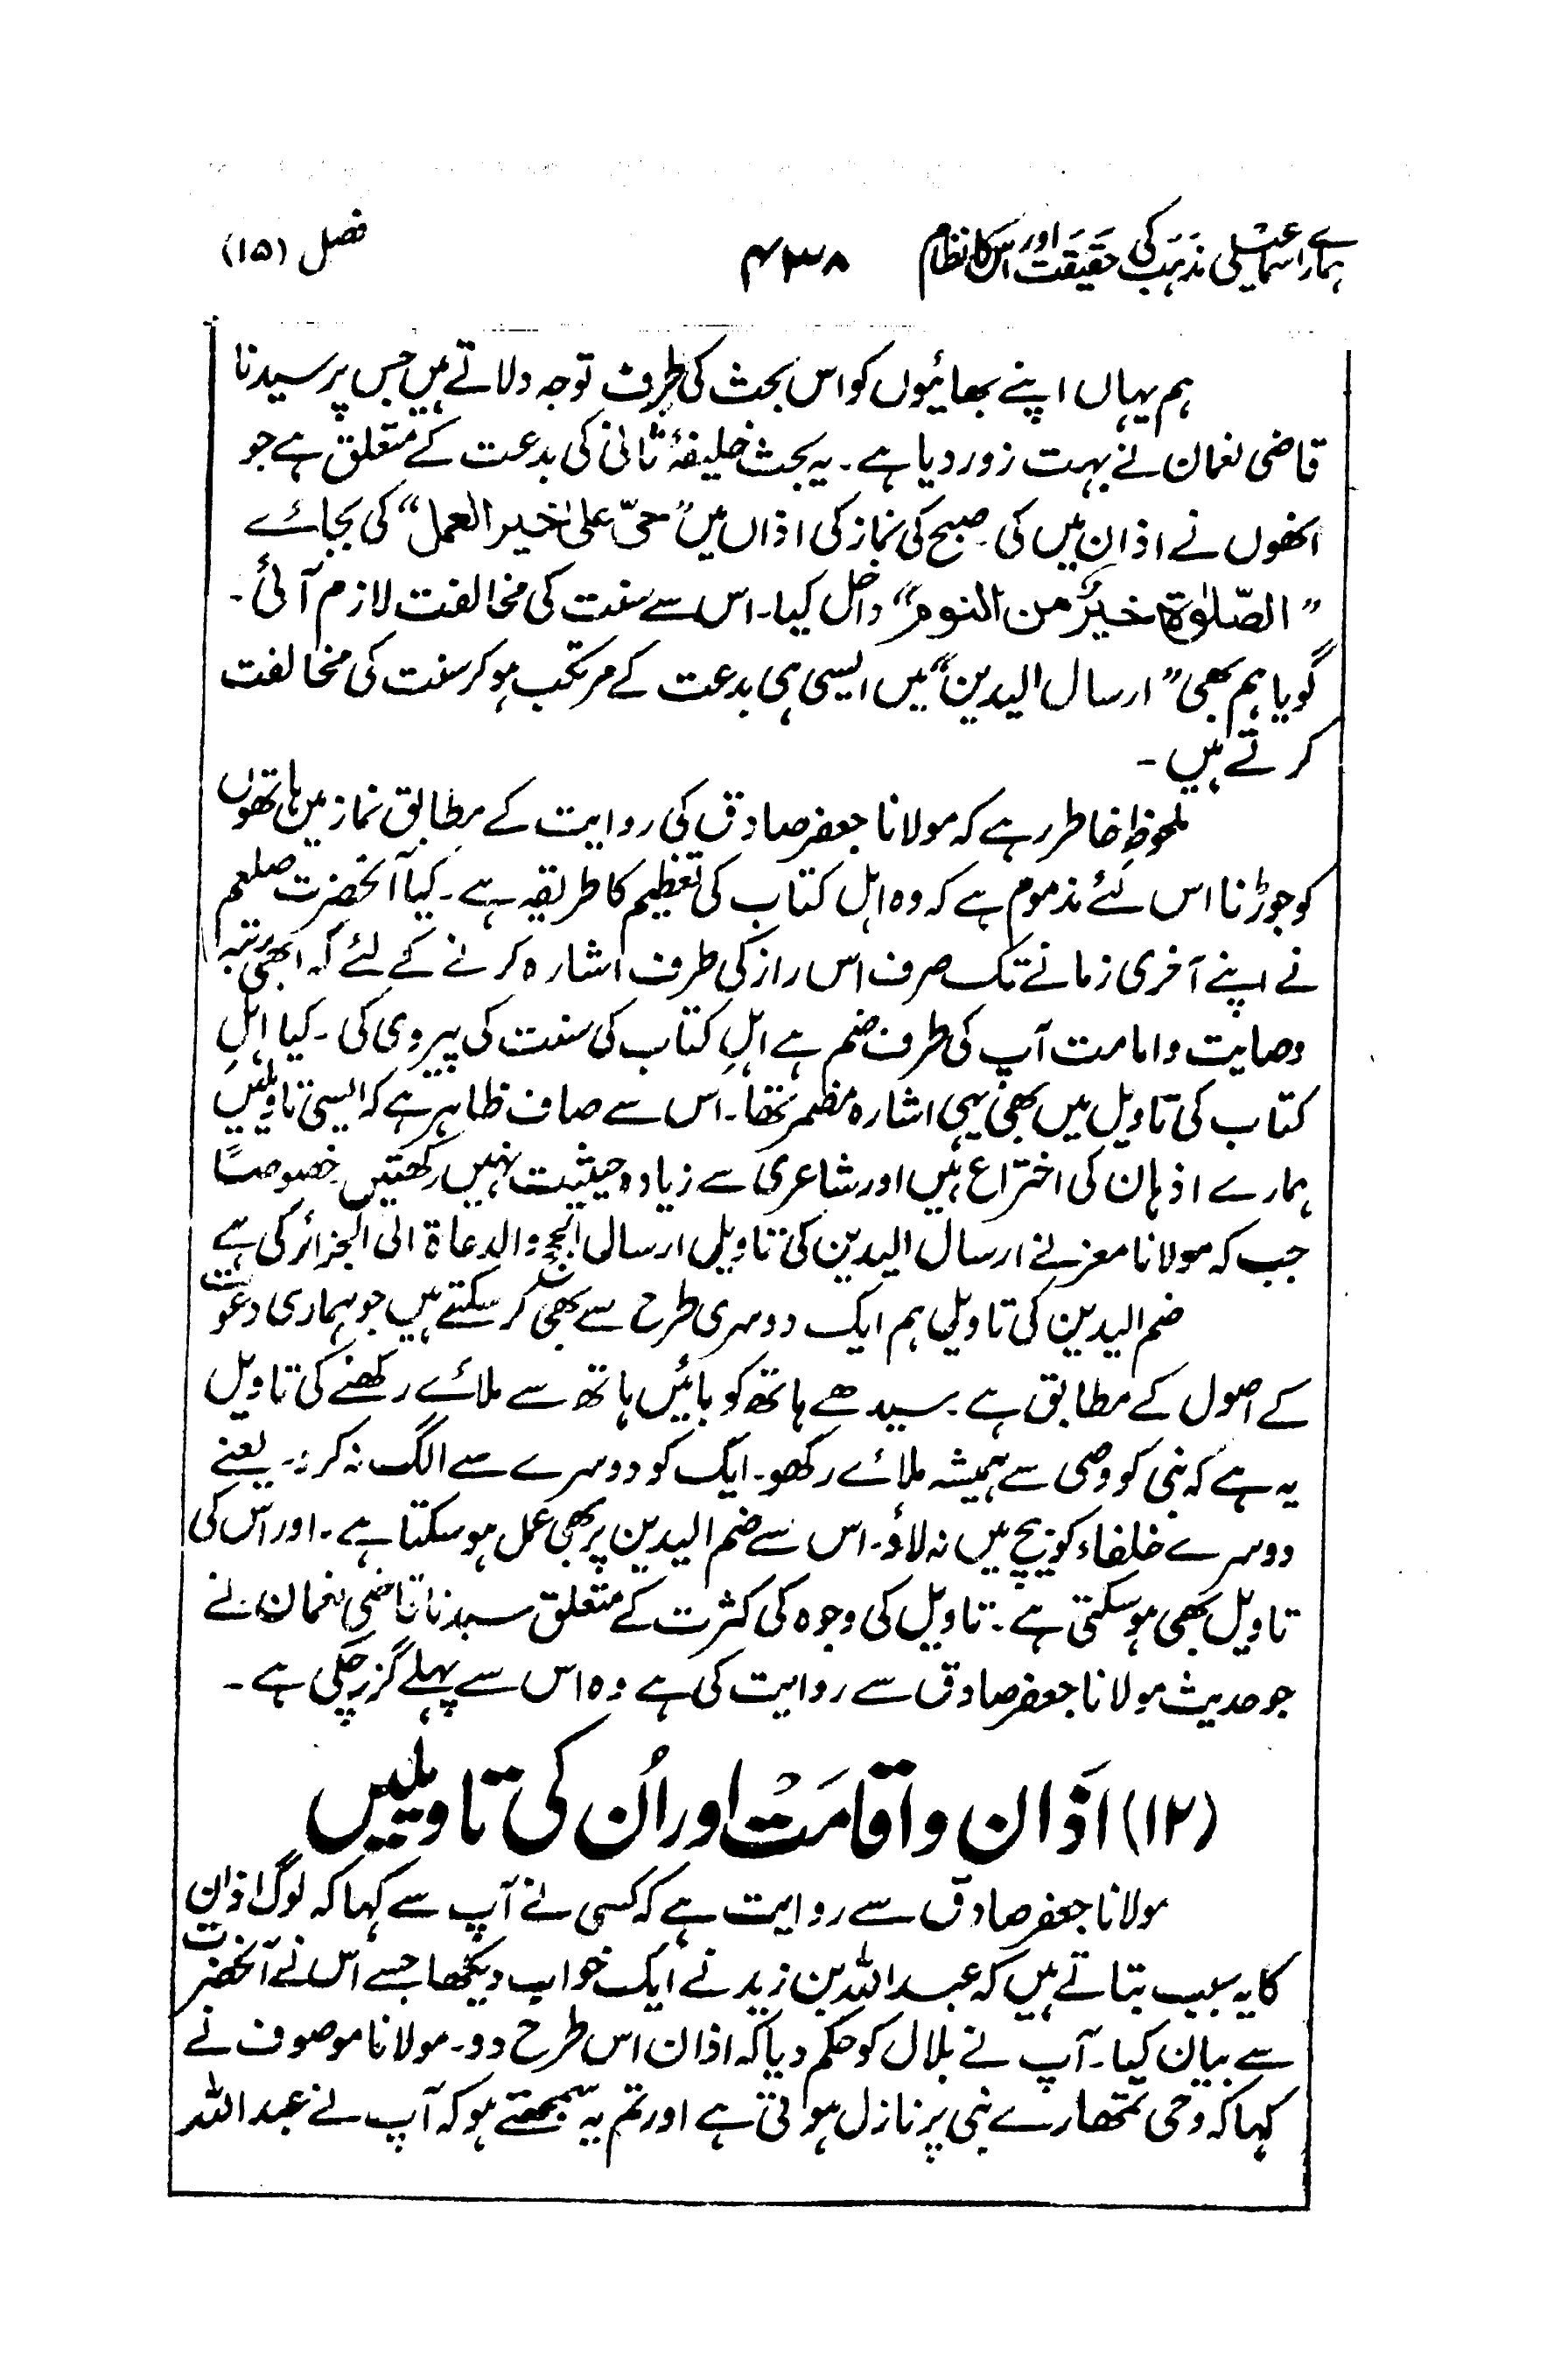 ہمارے اسماعیلی مذہب کی حقیقت اور اس کا نظام ۴۳۸ فصل (۱۵)
ہم یہاں اپنے بھائیوں کو اس بحث کی طرف توجہ دلاتے ہیں جس پر سیدنا
قاضی نعمان نے بہت زور دیا ہے۔ یہ بحث خلیفۂ ثانی کی بدعت کے متعلق ہے جو
انھوں نے اذان میں کی۔ صبح کی نماز کی اذاں میں ”حیّ علیٰ خیر العمل“ کی بجائے
”الصّلوٰۃ خیرٌ من النوم“ داخل کیا۔ اس سے سنت کی مخالفت لازم آئی۔
گویا ہم بھی ”ارسال الیدین“ میں ایسی ہی بدعت کے مرتکب ہو کر سنت کی مخالفت
کرتے ہیں۔
ملحوظِ خاطر رہے کہ مولانا جعفر صادق کی روایت کے مطابق نماز میں ہاتھوں
کو جوڑنا اس لئے مذموم ہے کہ وہ اہل کتاب کی تعظیم کا طریقہ ہے۔ کیا آنحضرت صلعم
نے اپنے آخری زمانے تک صرف اس راز کی طرف اشارہ کرنے کے لئے کہ ابھی رتبہ
وصایت و امامت آپ کی طرف ضم ہے اہلِ کتاب کی سنت کی پیروی کی۔ کیا اہلِ
کتاب کی تاویل میں بھی یہی اشارہ مضمر تھا۔ اس سے صاف ظاہر ہے کہ ایسی تاویلیں
ہمارے اذہان کی اختراع ہیں اور شاعری سے زیادہ حیثیت نہیں رکھتیں خصوصاً
جب کہ مولانا معز نے ارسال الیدین کی تاویل ارسال الحجج والدعاۃ الی الجزائر کی ہے
ضم الیدین کی تاویل ہم ایک دوسری طرح سے بھی کر سکتے ہیں جو ہماری دعوت
کے اصول کے مطابق ہے۔ سیدھے ہاتھ کو بائیں ہاتھ سے ملائے رکھنے کی تاویل
یہ ہے کہ نبی کو وصی سے ہمیشہ ملائے رکھو۔ ایک کو دوسرے سے الگ نہ کرو۔ یعنے
دوسرے خلفاء کو بیچ میں نہ لاؤ۔ اس سے ضم الیدین پر بھی عمل ہو سکتا ہے۔ اور اس کی
تاویل بھی ہو سکتی ہے۔ تاویل کی وجوہ کی کثرت کے متعلق سیدنا قاضی نعمان نے
جو حدیث مولانا جعفر صادق سے روایت کی ہے وہ اس سے پہلے گزر چکی ہے۔
(۱۲) اَذان و اقامَتْ اور اُن کی تاویلیں
مولانا جعفر صادق سے روایت ہے کہ کسی نے آپ سے کہا کہ لوگ اذان
کا یہ سبب بتاتے ہیں کہ عبد اللہ بن زید نے ایک خواب دیکھا جسے اس نے آنحضرت
سے بیان کیا۔ آپ نے بلال کو حکم دیا کہ اذان اس طرح دو۔ مولانا موصوف نے
کہا کہ وحی تمھارے نبی پر نازل ہوتی ہے اور تم یہ سمجھتے ہو کہ آپ نے عبد اللہ